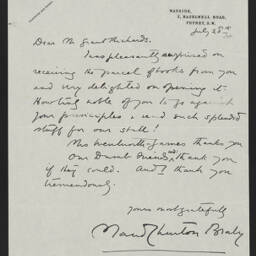 WARRINE,
2, HAZELWELL ROAD,
PUTNEY, S.W.
July 23rd
Dear Mr Grant Richards.
I was pleasantly surprised on
receiving the parcel of books from you
and very delighted on opening it.
How very noble of you to go against
your principles & send such splendid
stuff for our stall!
Mrs Wentworth-James thanks you
Our Dumb Friends thank you
if they could. And I thank you
tremendously.
Yours most gratefully
Maud Churton Braby